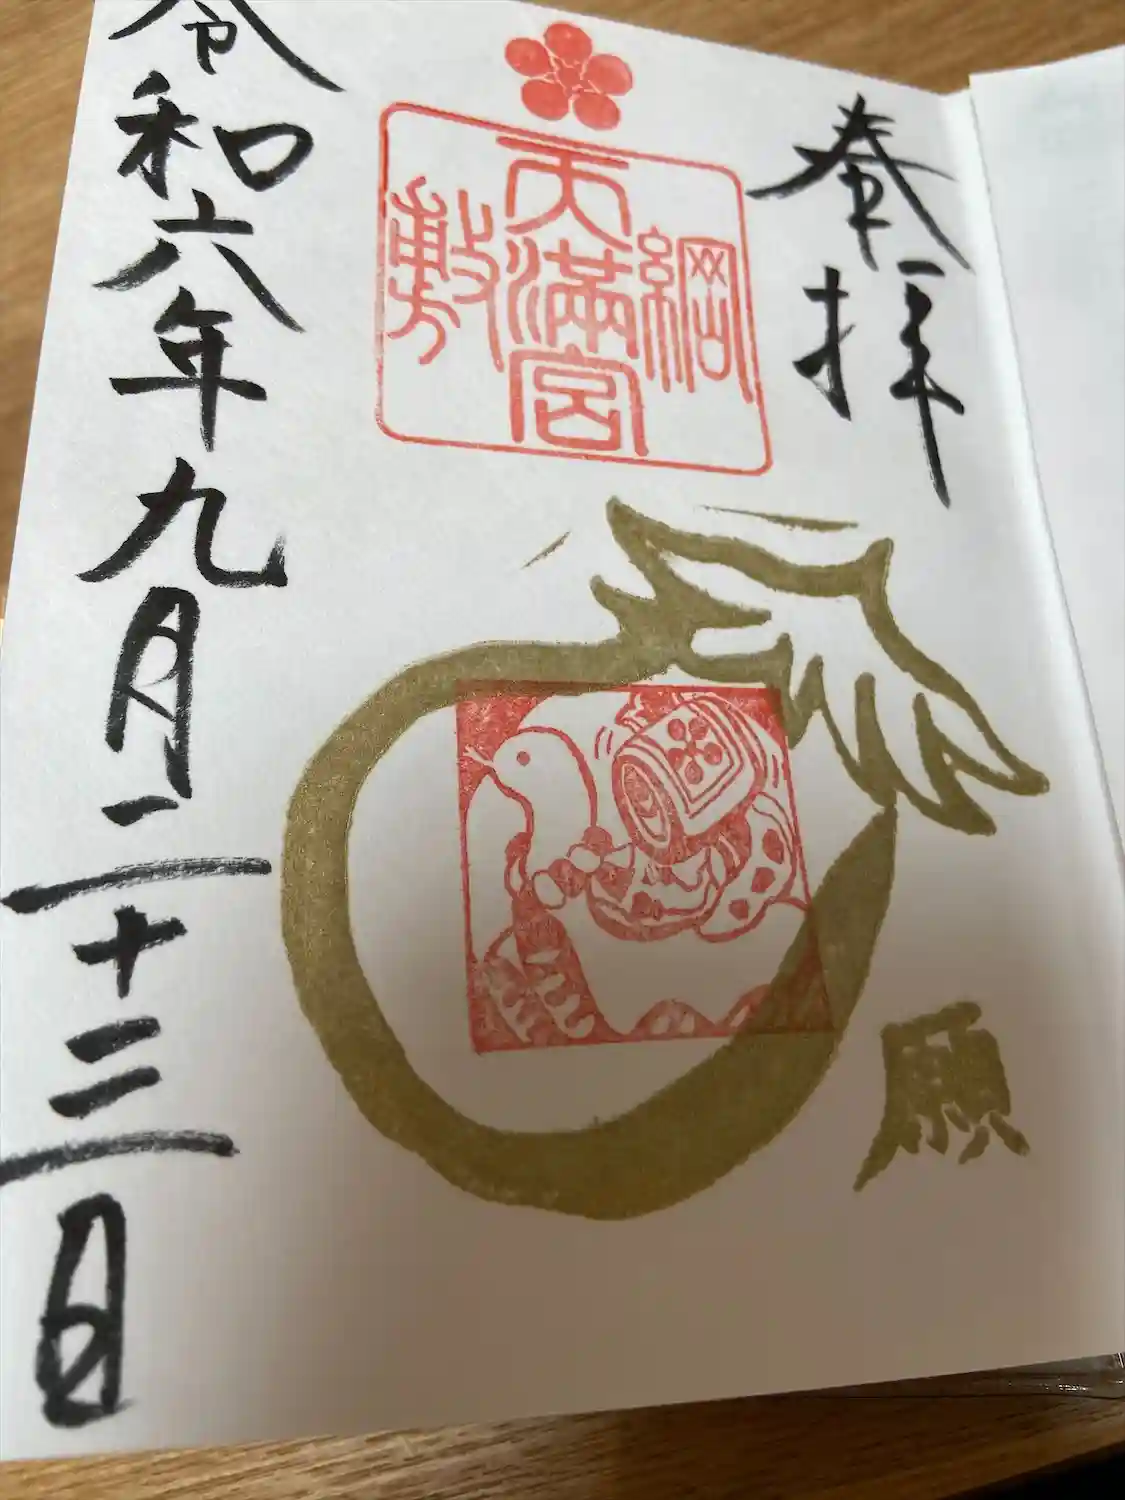 奉拝
綱敷
天満宮
願
令和六年九月二十三日